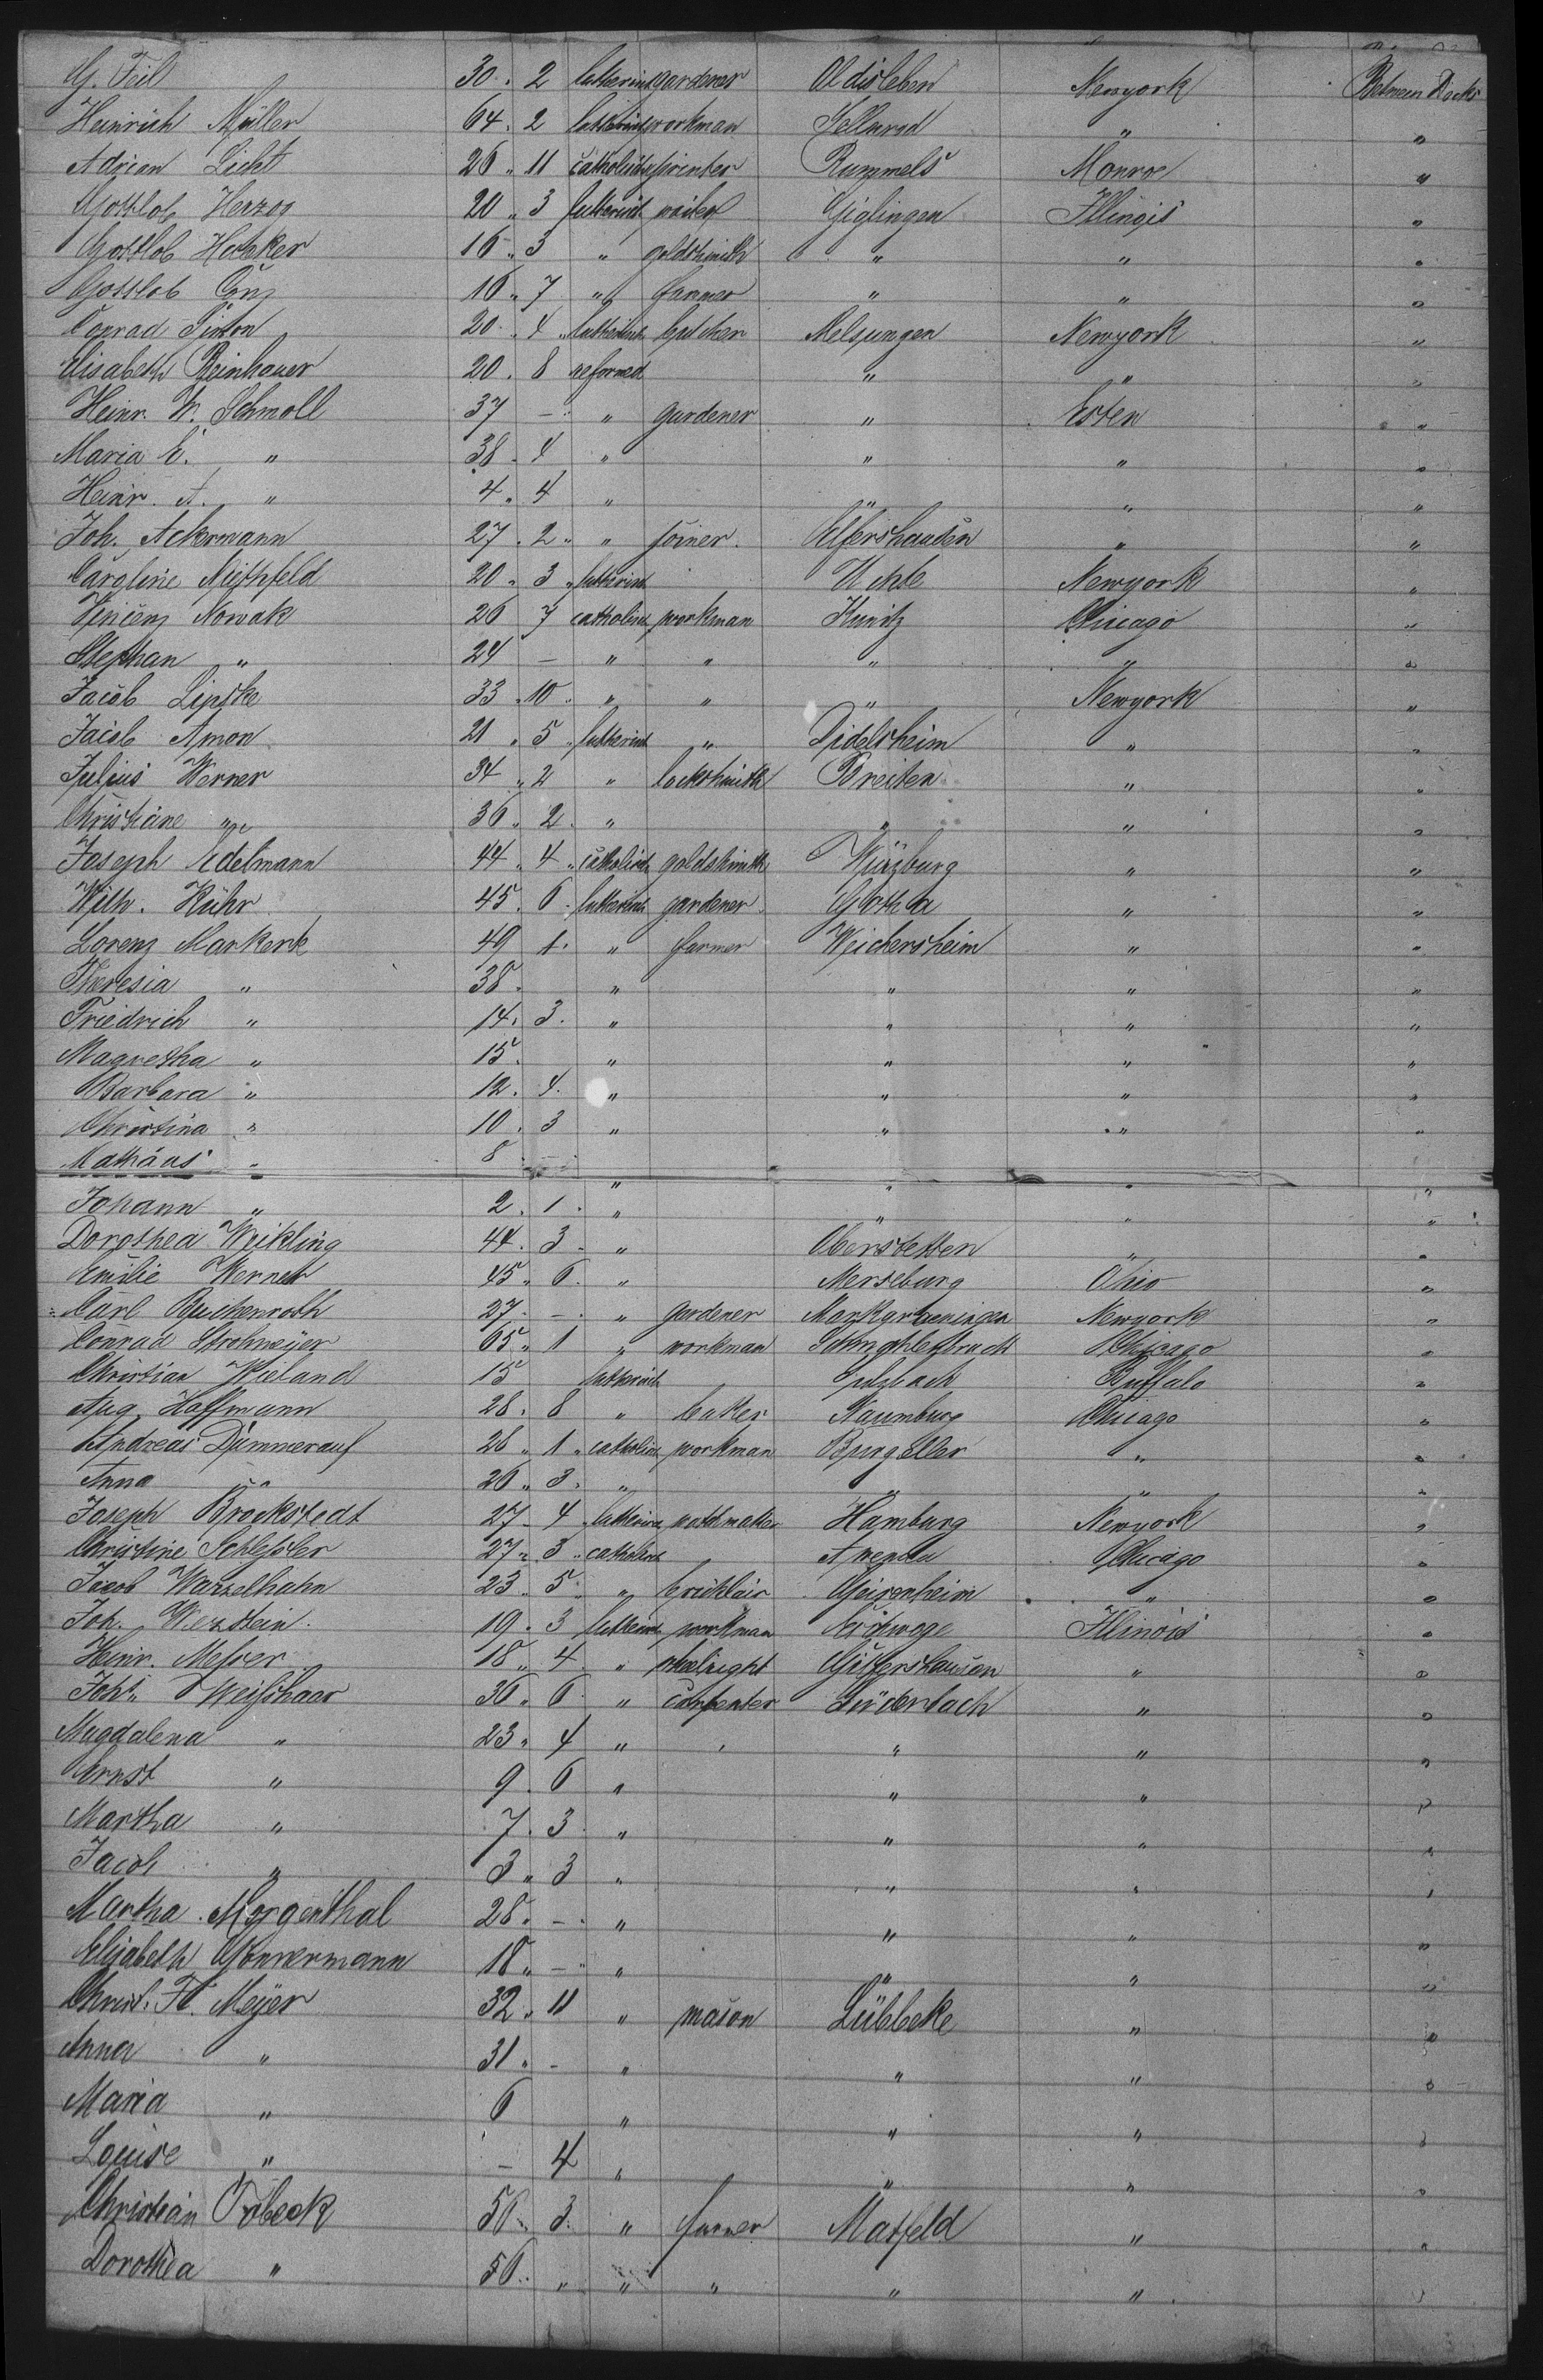 G. Teil 30 . 2 lutherisch gardener Oldisleben Newyork Between Decks
Heinrich Müller 64 . 2 lutherisch workman Sellnrod " "
Adrian Licht 26 " 11 catholisch printer Rummels Monroe "
Gottlob Herzog 20 " 3 lutherisch Giglingen Illinois "
Gottlob Hacker 16 " 3 " goldshmith " " "
Gottlob 16 " 7 " farmer " " "
Conrad Simon 20 " 4 " lutherisch butcher Melsungen Newyork "
Elisabeth Reinhauer 20 . 8 reformed " " "
Heinr. W. Schmoll 37 — " gardener " Esten "
Maria E. " 38 . 4 " " " "
Heinr. A. " 4 " 4 " " " "
Joh. Ackermann 27 . 2 " " joiner. Elfershausen " "
Caroline Niethfeld 20 " 3 " lutherisch Uchte Newyork "
Vincenz Nowak 26 7 catholisch workman Kunitz Chicago "
Stephan " 24 — " " " " "
Jacob Lipske 33 . 10 . " " " Newyork "
Jacob Amon 21 " 5 " lutherisch " Didelsheim " "
Julius Werner 34 " 2 " lockshmith Breiten " "
Christiane " 36 " 2 . " " " "
Joseph Edelmann 44 " 4 " catholisch goldshmith Würzburg " "
Wilh. Kühr 45 . 6 . lutherisch gardener Gotha " "
Lorenz Markert 49 1 . " farmer Weickersheim " "
Theresia " 38 . " " " "
Friedrich " 14 . 3 . " " " "
Magretha " 15 . " " " "
Barbara " 12 . 4 . " " " "
Christina " 10 . 3 " " " "
Mathäus " 8 — " " " "
Johann " 2 . 1 . " " " "
Dorothea Weikling 44 . 3 . " Oberstetten " "
Emilie Werner 45 " 6 . " Merseburg Ohio "
Carl Buchenroth 27 — " gardener Markgroeningen Newyork "
Conrad Strohmeÿer 65 " 1 " workman Chicago "
Christian Wieland 15 lutherisch Sulzbach Buffalo "
Aug. Hoffmann 28 . 8 " baker Naumburg Chicago "
Andreas Dimmerauf 26 " 1 " catholisch workman " "
Anna " 26 " 3 . " " " "
Joseph Brockstedt 27 — 4 lutherisch watchmaker Hamburg Newyork "
Christine Schlessler 27 " 3 " catholisch Chicago "
Jacob Warzelhahn 23 " 5 " " Geisenheim " "
Joh. Wezstein 19 . 3 lutherisch workman Illinois "
Heinr. Messer 18 " 4 . " " "
Joh. Weisshaar 36 " 6 . " carpenter Lüderbach " "
Magdalena " 23 " 4 " " " " "
Ernst " 9 . 6 " " " "
Martha " 7 . 3 . " " " "
Jacob " 3 " 3 " " " "
Martha Morgenthal 28 . — . " " " "
Elisabeth Gonnermann 18 " — " " " " "
Christ. Fr. Meÿer 32 " 11 " mason Lübbeke " "
Anna " 31 " — " " " "
Maria " 6 " " " "
Louise " — 4 " " " "
Christian Tobeck 56 " 3 . " farmer Matfeld " "
Dorothea " 56 " " " " " " "